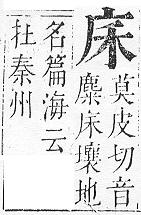 床
莫皮切音
麋床壤地
名篇海云
扗秦州